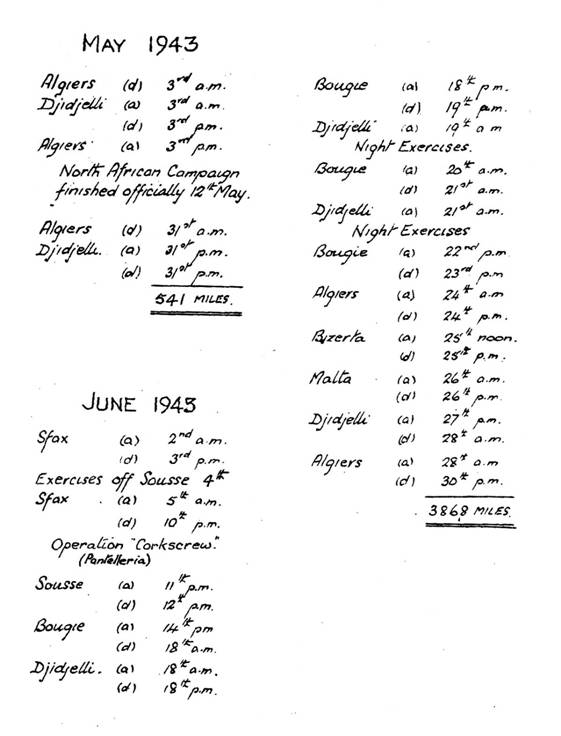 MAY 1943
Algiers (d) 3rd a.m.
Djidjelli (a) 3rd a.m.
(d) 3rd p.m.
Algiers (a) 3rd p.m.
North African Campaign
finished officially 12th May.
Algiers (d) 31st a.m.
Djidjelli. (a) 31st p.m.
(d) 31st p.m.
541 MILES.
JUNE 1943
Sfax (a) 2nd a.m.
(d) 3rd p.m.
Exercises off Sousse 4th
Sfax . (a) 5th a.m.
(d) 10th p.m.
Operation "Corkscrew."
(Pantelleria)
Sousse (a) 11th p.m.
(d) 12th p.m.
Bougie (a) 14th pm
(d) 18th a.m.
Djidjelli. (a) 18th a.m.
(d) 18th p.m.
Bougie (a) 18th p.m.
(d) 19th p.m.
Djidjelli (a) 19th a m
Night Exercises.
Bougie (a) 20th a.m.
(d) 21st a.m.
Djidjelli (a) 21st a.m.
Night Exercises
Bougie (a) 22nd p.m
(d) 23rd p.m
Algiers (a) 24th a.m
(d) 24th p.m.
Bizerta (a) 25th noon.
(d) 25th p.m.
Malta (a) 26th a.m.
(d) 26th p.m.
Djidjelli (a) 27th p.m.
(d) 28th a.m.
Algiers (a) 28th a.m
(d) 30th p.m.
3868 MILES.